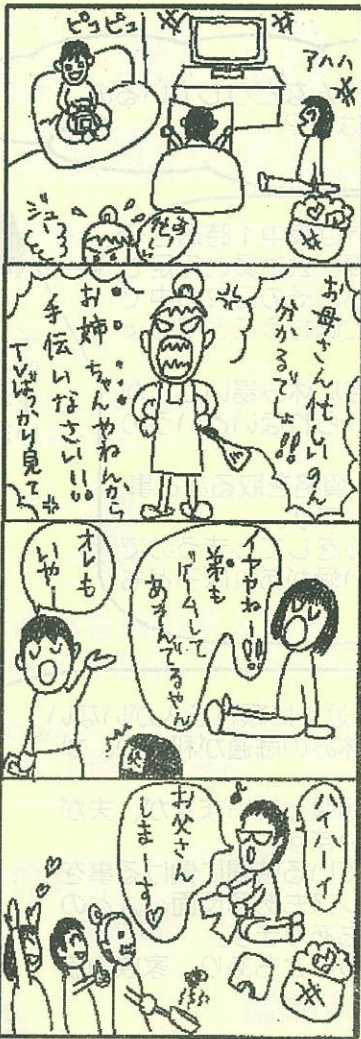 ピコピコ
アハハ
ジュー
お母さん忙しいのん
分かるでしょ!!
お姉ちゃんやねんから
手伝いなさい!!
TVばっかり見て
イヤやねー!!
弟も
ゲームして
あそんでるやん
オレも
いやー
父
ハイハーイ
お父さん
しまーす♡